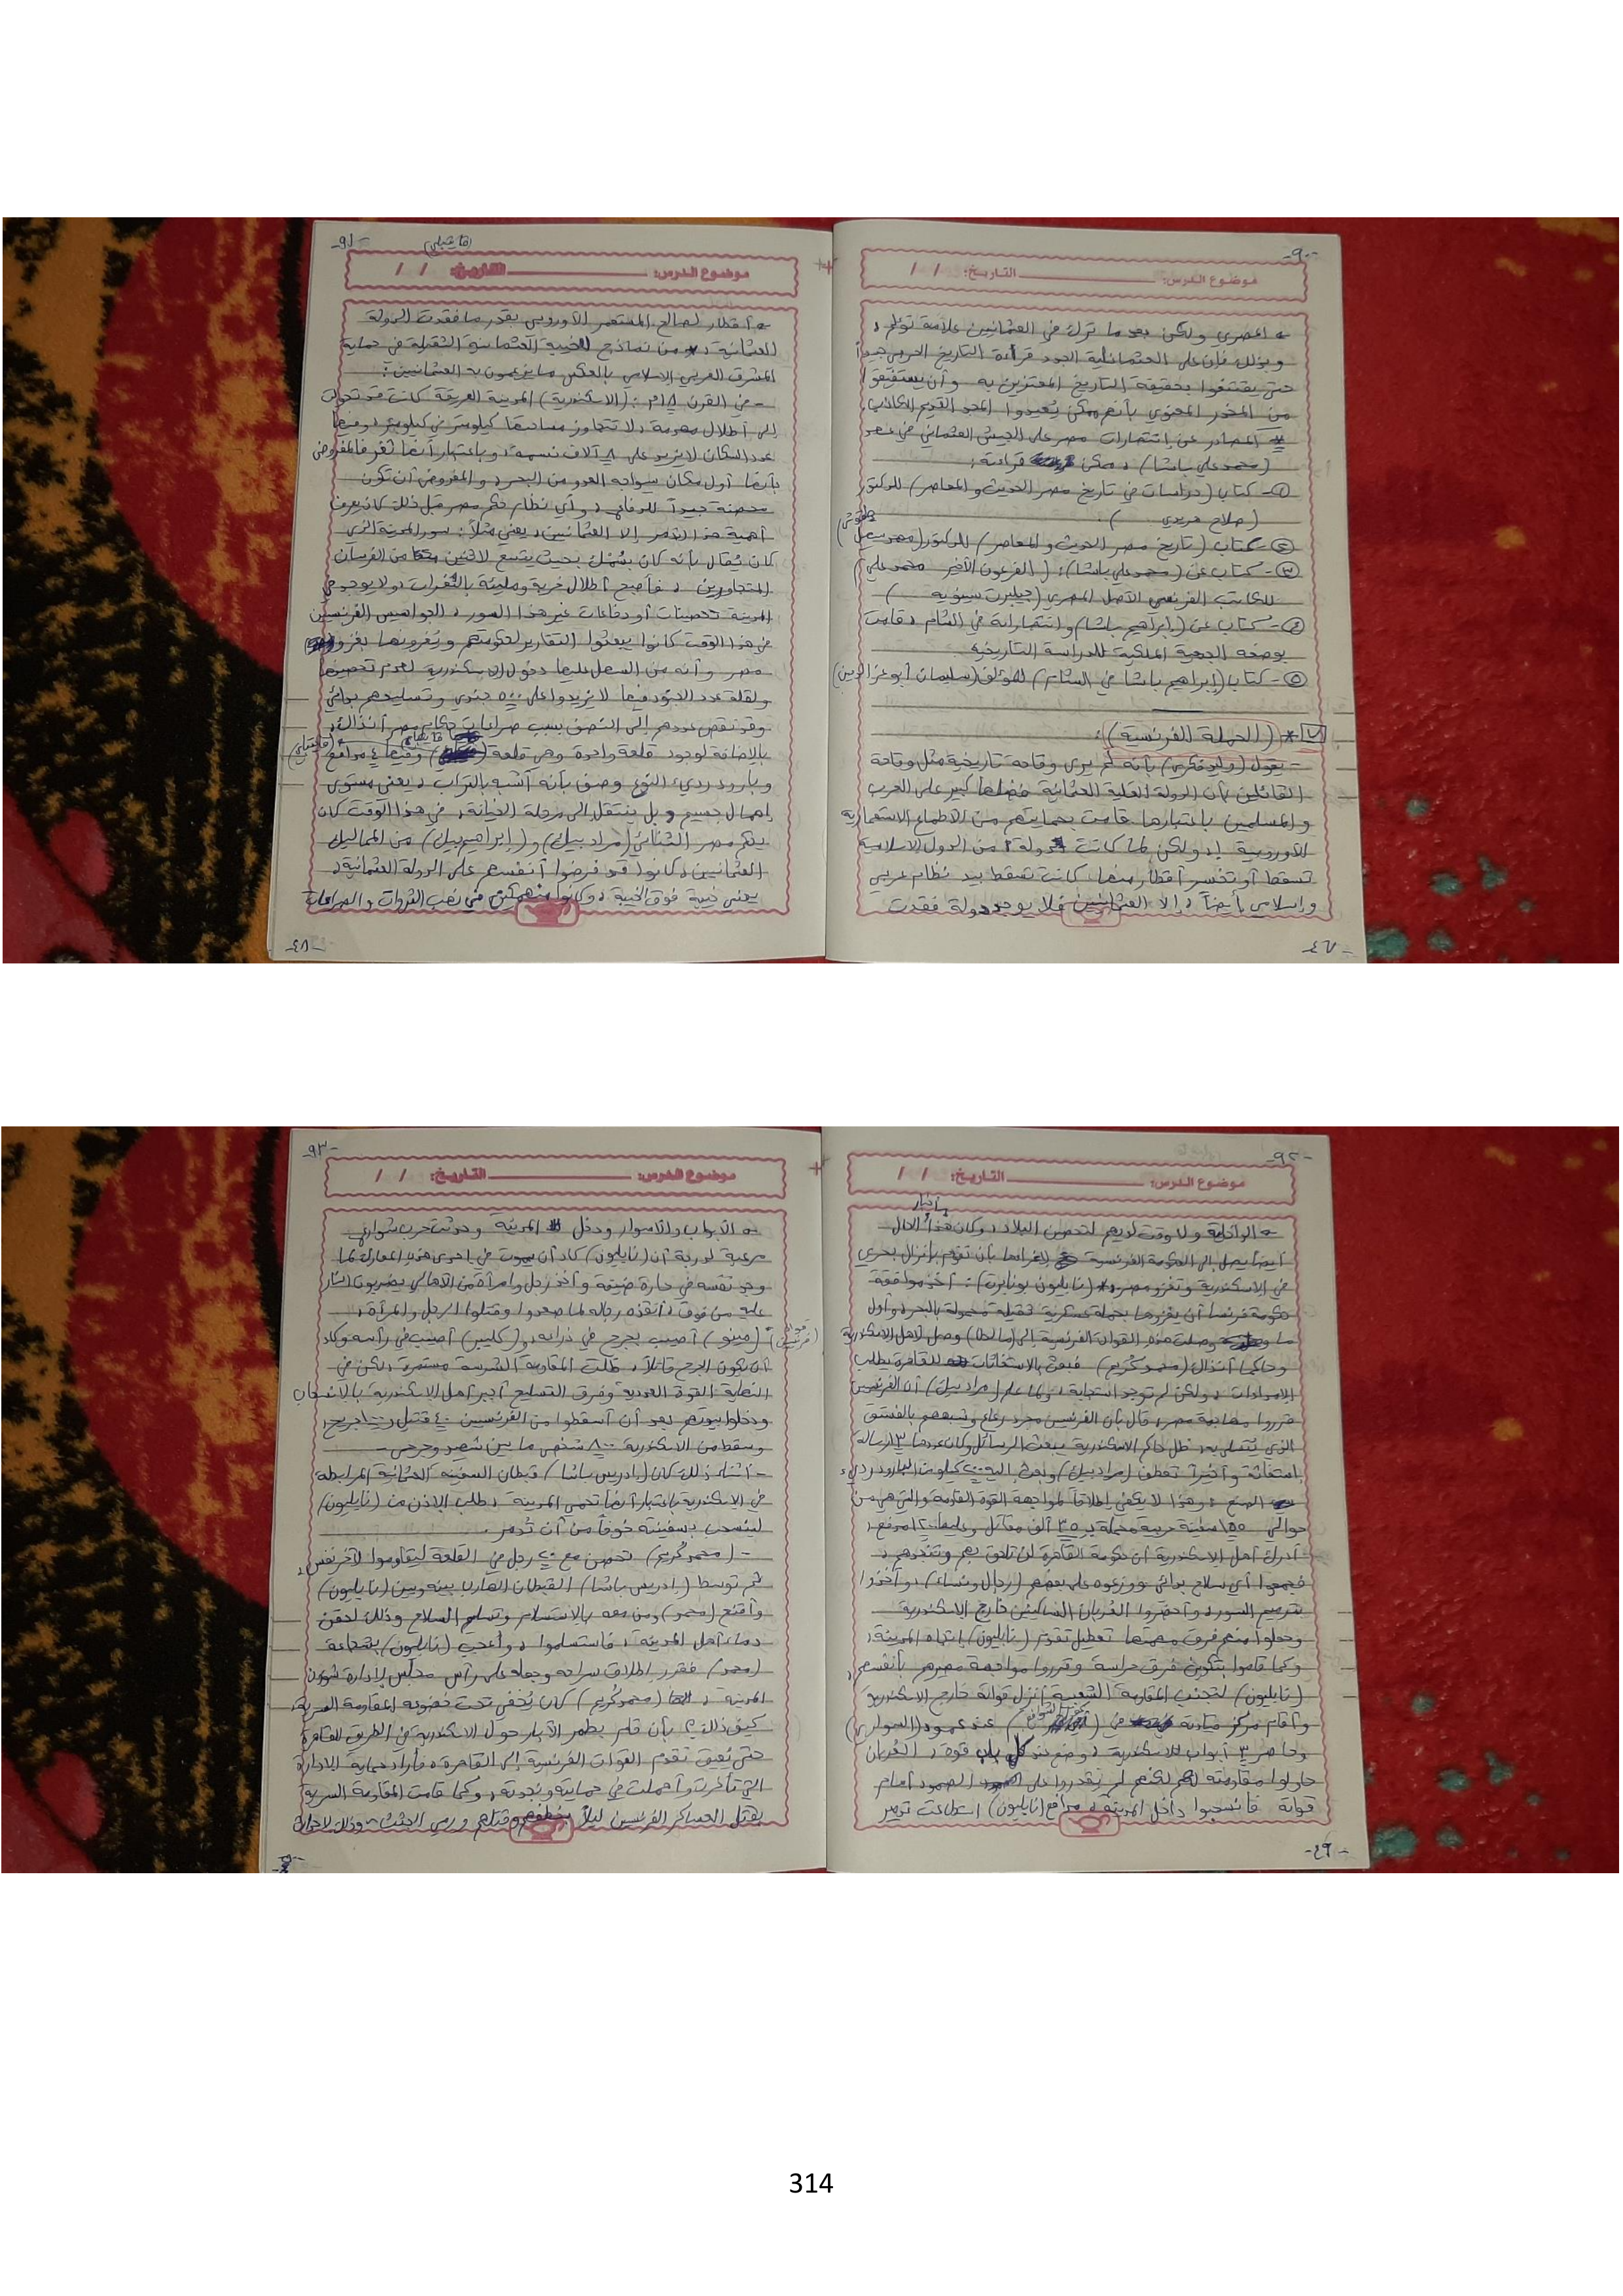 -٩٠-
موضوع الدرس: التاريخ: / /
المصري ولكن بعد ما ترك في العثمانيين علامة تؤلم،
وبذلك فإن على العثمانلية الجدد قراءة التاريخ الحربي جيداً
حتى يقتنعوا بحقيقة التاريخ المعتزين به وأن يستفيقوا
من المخدر المعنوي بأنهم ممكن يُعيدوا المجد القديم الكاذب
* المصادر عن إنتصارات مصر على الجيش العثماني في عهد
(محمد علي باشا)، ممكن قراءة:
١- كتاب (دراسات في تاريخ مصر الحديث والمعاصر) للدكتور
(صلاح هريدي).
٢- كتاب (تاريخ مصر الحديث والمعاصر) للدكتور
٣- كتاب عن (محمد علي باشا): (الفرعون الأخير محمد علي)
للكاتب الفرنسي الأصل المصري (جيلبرت سينويه)
٤- كتاب عن (إبراهيم باشا) وانتصاراته في الشام، قامت
بوضعه الجمعية الملكية للدراسة التاريخية
٥- كتاب (إبراهيم باشا في الشام) للمؤلف (سليمان أبو عز الدين)
٧* (الحملة الفرنسية):
- يقول (وليد فكري) بأنه لم يرى وقاحة تاريخية مثل وقاحة
القائلين بأن الدولة العلية العثمانية فضلها كبير على العرب
والمسلمين باعتبارها قامت بحمايتهم من الأطماع الاستعمارية
الأوروبية، ولكن لما كانت دولة من الدول الإسلامية
تسقط أو تخسر أقطار منها كانت تسقط بيد نظام عربي
وإسلامي أيضاً، إلا العثمانيين فلا يوجد دولة فقدت
-٤٧-
-٩١-
(قايتباي)
موضوع الدرس: التاريخ: / /
أقطار لصالح المستعمر الأوروبي بقدر ما فقدت الدولة
العثمانية، من نماذج الخيبة العثمانية الثقيلة في حماية
المشرق العربي الإسلامي بالعكس ما يزعمون به العثمانيين:
- في القرن ١٨م: (الاسكندرية) المدينة العريقة كانت قد تحولت
إلى أطلال مهدمة، لا تتجاوز مساحتها كيلومتر في كيلومتر، وفيها
عدد السكان لا يزيد على ٨ آلاف نسمة، وباعتبار أنها ثغر فالمفروض
بأنها أول مكان سيواجه العدو من البحر، والمفروض أن تكون
محصنة جيداً للدفاع، وأي نظام حكم مصر قبل ذلك كان يعرف
أهمية هذا الثغر إلا العثمانيين، يعني مثلاً: سور المدينة الذي
كان يُقال بأنه كان سُمك بحيث يتسع لاثنين من الفرسان
المتجاورين، فأصبح أطلال خربة ومليئة بالثغرات، ولا يوجد في
المدينة تحصينات أو دفاعات غير هذا السور، الجواسيس الفرنسيين
في هذا الوقت كانوا يبعثوا التقارير لحكومتهم ويُغرونها بغزو
مصر وأنه من السهل عليها دخول الاسكندرية لعدم تحصينها
ولقلة عدد الجنود فيها لا يزيدوا على ٥٠٠ جندي وتسليحهم بدائي
وقد نقص عددهم إلى النصف بسبب صراعات حكام مصر آنذاك،
بالإضافة لوجود قلعة واحدة وهي قلعة (قايتباي) وفيها ٤ مدافع
وبارود رديء النوع وصف بأنه أشبه بالتراب، يعني مستوى
إهمال جسيم، بل ينتقل إلى مرحلة الخيانة، في هذا الوقت كان
يحكم مصر الثنائي (مراد بيك) و(إبراهيم بيك) من المماليك
العثمانيين، كانوا قد فرضوا أنفسهم على الدولة العثمانية،
يعني خيبة فوق الخيبة، وكانوا منهمكين في نهب الثروات والصراعات
-٤٨-
-٩٢-
موضوع الدرس: التاريخ: / /
الداخلية ولا وقت لديهم لتحصين البلاد، وكان هذا الحال
أيضاً يصل إلى الحكومة الفرنسية لإغرائها بأن تقوم بإنزال بحري
في الاسكندرية وتغزو مصر، (نابليون بونابرت): أخذ موافقة
حكومة فرنسا أن يغزوها بحملة عسكرية ثقيلة محمولة بالبحر، وأول
ما وصلت هذه القوات الفرنسية إلى (مالطا) وصل لأهل الاسكندرية
وحاكمها آنذاك (محمد كُريم) فبعث بالاستغاثات للقاهرة يطلب
الإمدادات، ولكن لم توجد استجابة، ولما علم (مراد بيك) أن الفرنسيين
قرروا مهاجمة مصر، قال بأن الفرنسيين مجرد رعاع وشبههم بالفستق
الذي يُتسلى به، ظل حاكم الاسكندرية يبعث الرسائل وكان عددها ١٣ رسالة
استغاثة وأخيراً تعطف (مراد بيك) وبعث إليه كيلوت البارود رديء
الصنع، وهذا لا يكفي إطلاقاً لمواجهة القوة القادمة والتي هي من
حوالي سفينة حربية محملة بـ ٣٥ ألف مقاتل وعليها مدفع،
أدرك أهل الاسكندرية أن حكومة القاهرة لن تلحق بهم وتنجدهم،
فجمعوا أي سلاح بدائي ووزعوه على بعضهم (رجال ونساء)، وأخذوا
بترميم السور، وأحضروا العُربان الساكنين خارج الاسكندرية
وجعلوا منهم فرق مهمتها تعطيل تقدم (نابليون) إتجاه المدينة،
وكما قاموا بتكوين فرق حراسة وقرروا مواجهة مصيرهم بأنفسهم،
(نابليون) لتجنب المقاومة الشعبية أنزل قواته خارج الاسكندرية
وأقام مركز قيادته في عند عمود (السواري)
وحاصر ٣ أبواب للاسكندرية، وضع عند كل باب قوة، العُربان
حاولوا مقاومته لكنهم لم يقدروا على الصمود أمام
قواته فانسحبوا داخل المدينة، مدافع (نابليون) استطاعت تدمير
-٤٩-
-٩٣-
موضوع الدرس: التاريخ: / /
الأبواب والأسوار ودخل المدينة وحدثت حرب شوارع
مرعبة لدرجة أن (نابليون) كاد أن يموت في إحدى هذه المعارك لما
وجد نفسه في حارة ضيقة وأخذ رجل وامرأة من الأهالي يضربون النار
عليه من فوق، أنقذه رجاله لما صعدوا وقتلوا الرجل والمرأة،
(مينو) أصيب بجرح في ذراعه، و(كليبر) أصيب في رأسه وكاد
أن يكون الجرح قاتلاً، ظلت المقاومة الشرسة مستمرة، لكن في
النهاية القوة العددية وفرق التسليح أجبر أهل الاسكندرية بالانسحاب
ودخلوا بيوتهم بعد أن أسقطوا من الفرنسيين ٤٠ قتيل و١٠٠ جريح،
وسقط من الاسكندرية ٨٠٠ شخص ما بين شهيد وجرحى
- أثناء ذلك كان (إدريس باشا) قبطان السفينة العثمانية المرابطة
في الاسكندرية باعتبار أنها تحمي المدينة، طلب الإذن من (نابليون)
لينسحب بسفينته خوفاً من أن تُدمر.
- (محمد كُريم) تحصن مع ٢٠ رجل في القلعة ليقاوموا لآخر نفس،
ثم توسط (إدريس باشا) القبطان الهارب بينه وبين (نابليون)
وأقنع (محمد) ومن معه بالاستسلام وتسليم السلاح وذلك لحقن
دماء أهل المدينة، فاستسلموا، وأُعجب (نابليون) بشجاعة
(محمد) فقرر إطلاق سراحه وجعله على رأس مجلس لإدارة شؤون
المدينة، (محمد كُريم) كان يُخفي تحت خضوعه المقاومة السرية،
كيف ذلك؟ بأن قام بطمر الآبار حول الاسكندرية في الطريق للقاهرة
حتى يُعيق تقدم القوات الفرنسية إلى القاهرة، فأراد حماية الإدارة
التي تأخرت وأهملت في حمايته ونجدته، وكما قامت المقاومة السرية
بقتل العساكر الفرنسيين ليلاً بخطفهم وقتلهم ورمي الجثث،
314